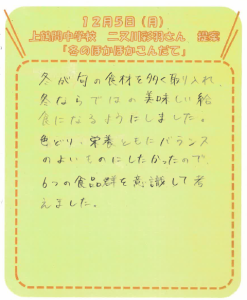 12月5日(月)
上鶴間中学校 二又川彩羽さん 提案
「冬のぽかぽかこんだて」
冬が旬の食材を多く取り入れ、
冬ならではの美味しい給
食になるようにしました。
色どり・栄養ともにバランス
のよいものにしたかったので、
6つの食品群を意識して考
えました。